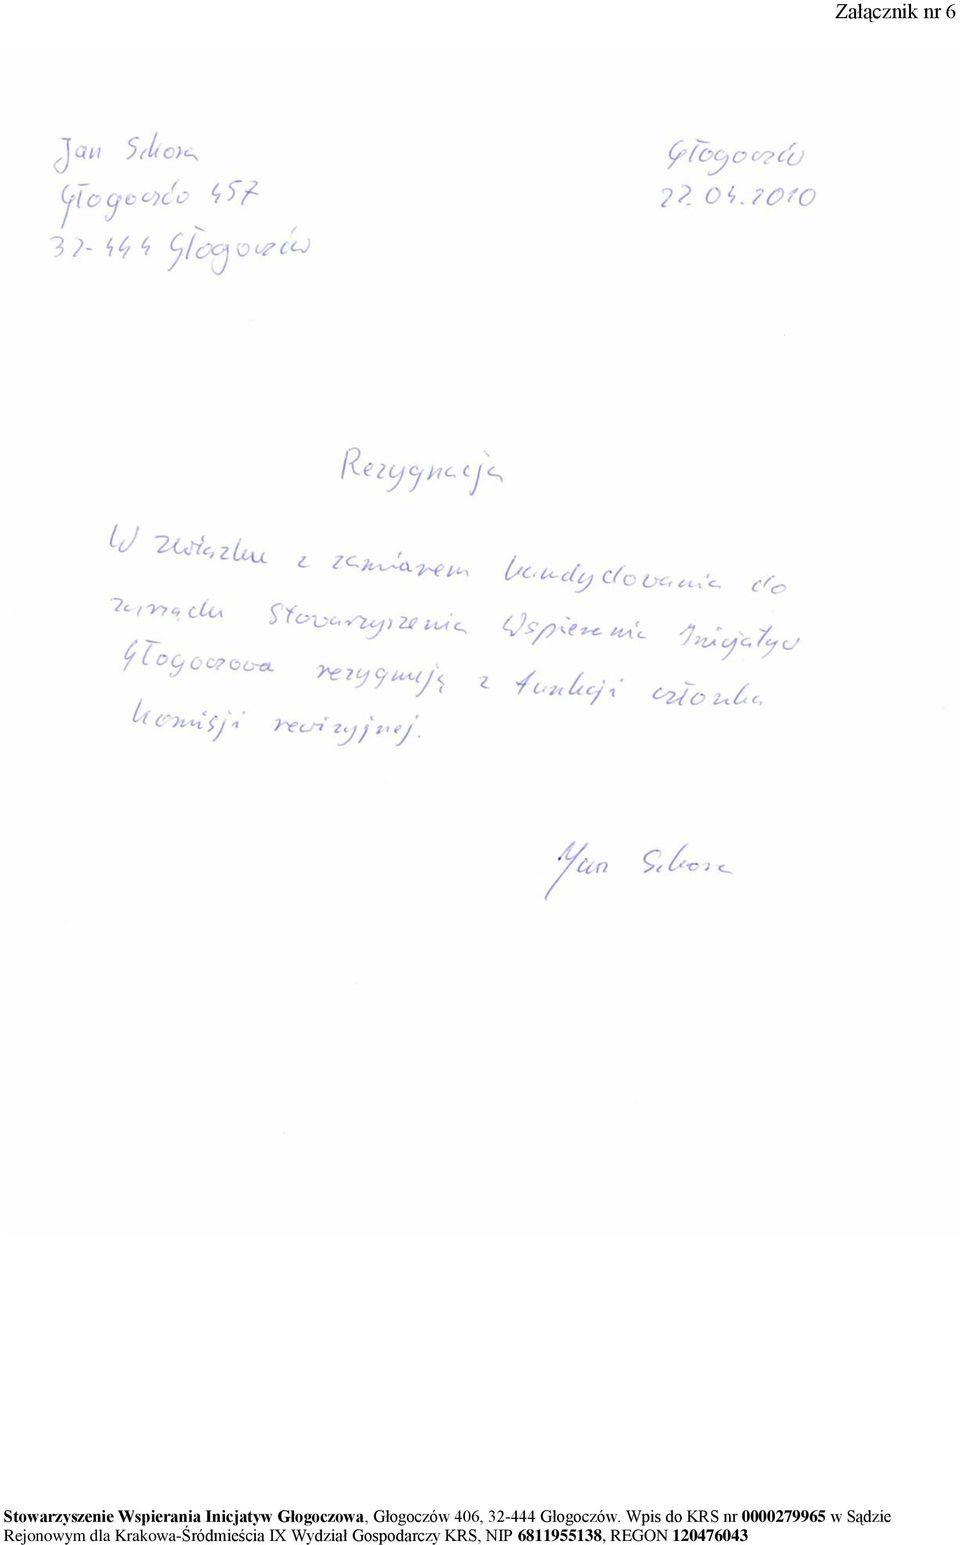 Załącznik nr 6
Jan Sikora
Głogoczów
Głogoczów 457
22.04.2010
32-444 Głogoczów
Rezygnacja
W związku z zamiarem kandydowania do
zarządu Stowarzyszenia Wspierania Inicjatyw
Głogoczowa rezygnuję z funkcji członka
komisji rewizyjnej.
Jan Sikora
Stowarzyszenie Wspierania Inicjatyw Głogoczowa, Głogoczów 406, 32-444 Głogoczów. Wpis do KRS nr 0000279965 w Sądzie
Rejonowym dla Krakowa-Śródmieścia IX Wydział Gospodarczy KRS, NIP 6811955138, REGON 120476043